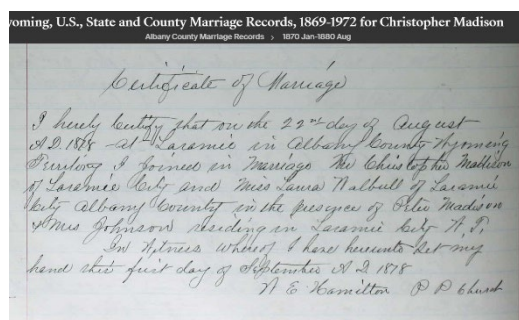 yoming, U.S., State and County Marriage Records, 1869-1972 for Christopher Madison
Albany County Marriage Records › 1870 Jan-1880 Aug
Certificate of Marriage
I hereby Certify that on the 22nd day of August
A.D. 1878 at Laramie in Albany County Wyoming
Territory I joined in Marriage Mr Christophe Madison
of Laramie City and Miss Laura Nalbull of Laramie
City Albany County in the presence of Peter Madison
& Mrs Johnson residing in Laramie City W.T.
In Witness whereof I have hereunto set my
hand this first day of September A D 1878
W E Hamilton P P Church